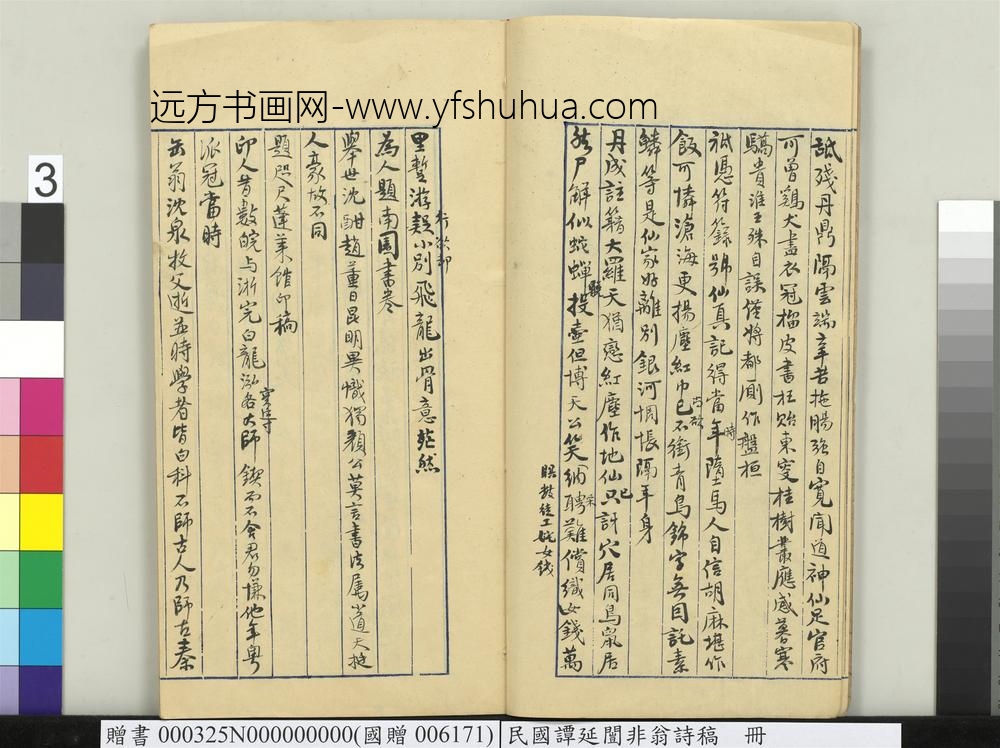 远方书画网-www.yfshuhua.com
舐殘丹鼎隔雲端辛苦拖腸強自寬聞道神仙足官府
可曾鷄犬盡衣冠榴皮書枉貽東叟桂樹叢應感暮寒
驕貴淮王殊自誤僅將都廁作盤桓
祗憑符籙號仙真記得當年時墮馬人自信胡麻堪作
飯可憐滄海更揚塵紅巾已不銜青鳥錦字無因託素
鱗等是仙家好離別銀河惆悵隔年身
丹成註籍大羅天猶戀紅塵作地仙只許穴居同鳥鼠居
然尸解似蛇蟬投壺但博天公笑納聘難償織女錢萬
眼教徒工姹女錢
里暫游歸小別飛龍出骨意茫然
為人題南園書卷
舉世沈酣趙董日昆明異幟獨顏公莫言書法屬道天挺
人豪故不同
題咫尺蓬萊館印稿
印人昔數皖与浙完白龍泓各大師鍥而不舍君勿慊他年粵
派冠當時
缶翁沈泉牧父逝並時學者皆白科不師古人乃師古秦
3
贈書 000325N000000000(國贈 006171) 民國譚延闓非翁詩稿 冊